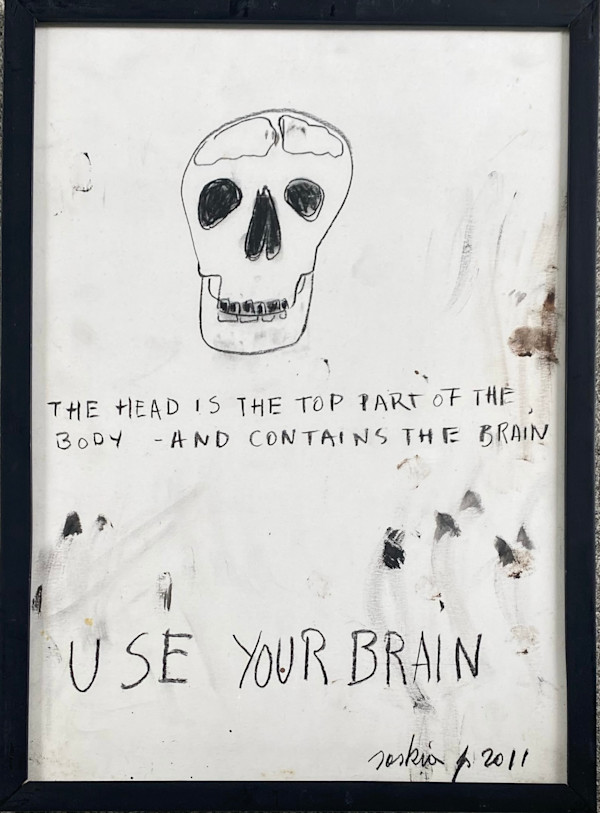 THE HEAD IS THE TOP PART OF THE
BODY - AND CONTAINS THE BRAIN
USE YOUR BRAIN
saskia p 2011